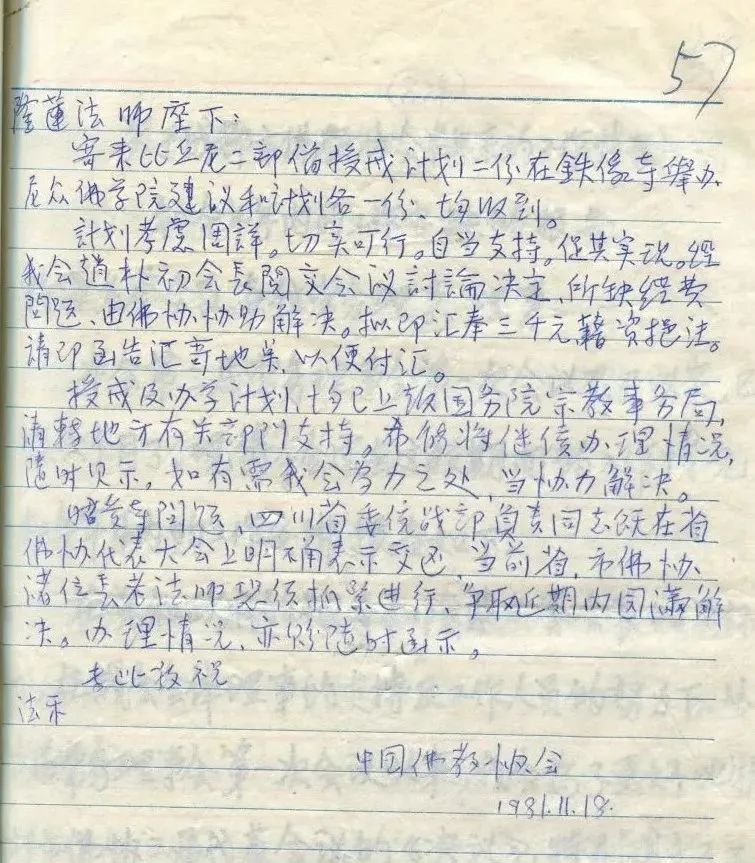 57
隆蓮法师座下:
寄来比丘尼二部僧授戒计划二份、在鉄像寺举办
尼众佛学院建议和计划各一份、均收到。
計划考慮周詳。切实可行。自当支持。促其实现。经
我会趙朴初会長閱交会议討論决定、所缺経费
問题、由佛协协助解决。拟即汇奉三千元藉資挹注。
請即函告汇寄地点、以便付汇。
授戒及办学计划、均已上报国务院宗教事务局,
清轉地方有关部門支持。希你将继续办理情况,
随时见示。如有需我会为力之处、当协力解决。
昭觉寺問题、四川省委统战部負责同志既在省
佛协代表大会上明确表示交还、当前省、市佛协、
诸位長老法师必须抓紧进行、争取近期内圆满解
决。办理情况、亦盼随时函示。
专此敬祝
法乐
中国佛教协会
1981.11.18.